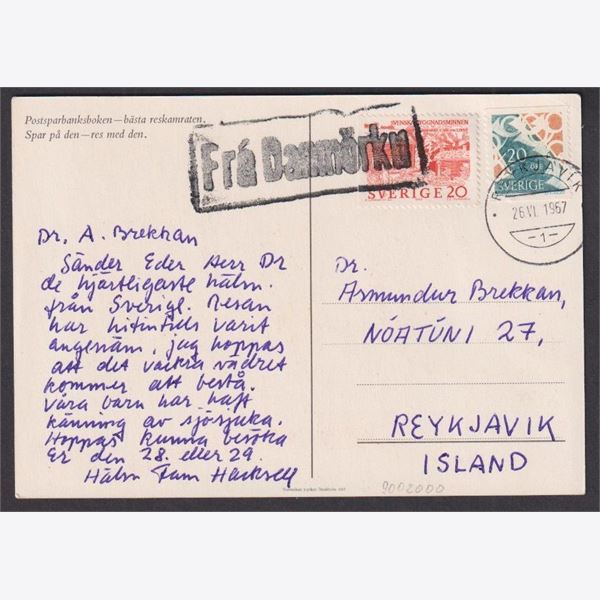 Postsparbanksboken—bästa reskamraten.
Spar på den—res med den.
Frá Danmörku
SVERIGE 20
20
SVERIGE
REYKJAVIK
26.VI.1967
-1-
Dr. A. Brekkan
Sänder Eder Herr Dr
de hjärtligaste häln.
från Sverige. Resan
har hitintils varit
angenäm, jag hoppas
att det vackra vädret
kommer att bestå.
Våra barn har haft
känning av sjösjuka.
Hoppas kunna besöka
Er den 28. eller 29.
Häln Fam
Dr.
Asmundur Brekkan,
NÓATÚNI 27,
REYKJAVIK
ISLAND
9002000